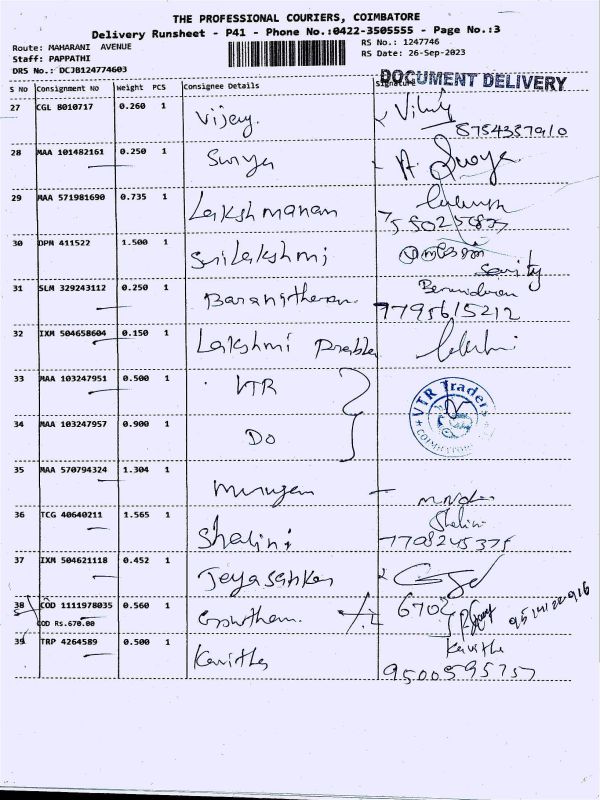 THE PROFESSIONAL COURIERS, COIMBATORE
Delivery Runsheet - P41 - Phone No.:0422-3505555 - Page No.:3
Route: MAHARANI AVENUE
RS No.: 1247746
Staff: PAPPATHI
RS Date: 26-Sep-2023
DRS No.: DCJB124774603
DOCUMENT DELIVERY
S No Consignment No Weight PCS Consignee Details Signature
27 CGL 8010717 0.260 1 Vijay.
8754337910
28 MAA 101482161 0.250 1 Surya A. Surya
29 MAA 571981690 0.735 1 Lakshmanan
30 DPM 411522 1.500 1 Srilakshmi
Security
31 SLM 329243112 0.250 1
7795615212
32 IXM 504658604 0.150 1 Lakshmi Prabha
33 MAA 103247951 0.500 1 VTR
VTR Traders
COIMBATORE
34 MAA 103247957 0.900 1 Do
35 MAA 570794324 1.304 1 Murugan
36 TCG 40640211 1.565 1 Shalini Shalini
7708245375
37 IXM 504621118 0.452 1 Jeyasankar
38 COD 1111978035 0.560 1 Gowtham 6702
COD Rs.670.00
39 TRP 4264589 0.500 1 Kavitha Kavitha
9500595757